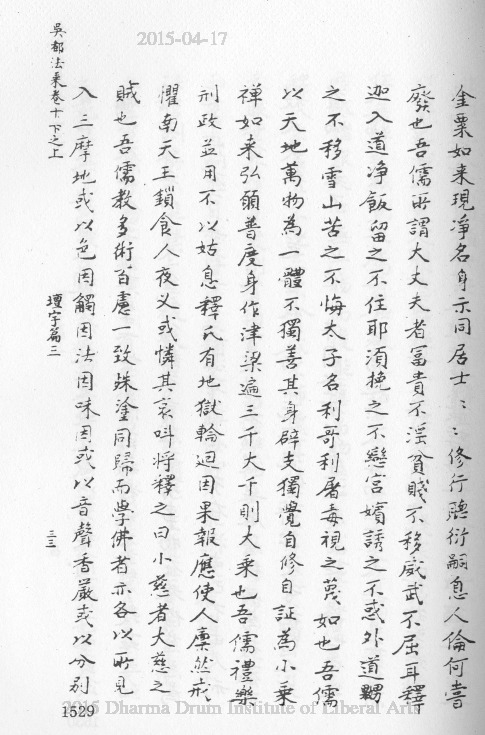 2015-04-17
金粟如来現淨名身示同居士〻〻修行聽衍嗣息人倫何嘗
廢也吾儒所謂大丈夫者富貴不淫貧賤不移威武不屈耳釋
迦入道淨飯留之不住耶須挽之不戀宮嬪誘之不惑外道
之不移雪山苦之不悔太子名利哥利屠毒視之蔑如也吾儒
以天地萬物為一體不獨善其身辟支獨覺自修自証為小乗
禅如来弘願普度身作津梁遍三千大千則大乗也吾儒禮樂
刑政並用不以姑息釋氏有地獄輪迴因果報應使人凜然戒
懼南天王鎖食人夜义或憐其哀呌将釋之曰小慈者大慈之
賊也吾儒教多術百慮一致殊塗同歸而學佛者亦各以所見
入三摩地或以色因觸因法因味因或以音聲香嚴或以分別
吳都法乘卷十下之上
壇宇篇三
三三
1529
2015 Dharma Drum Institute of Liberal Arts